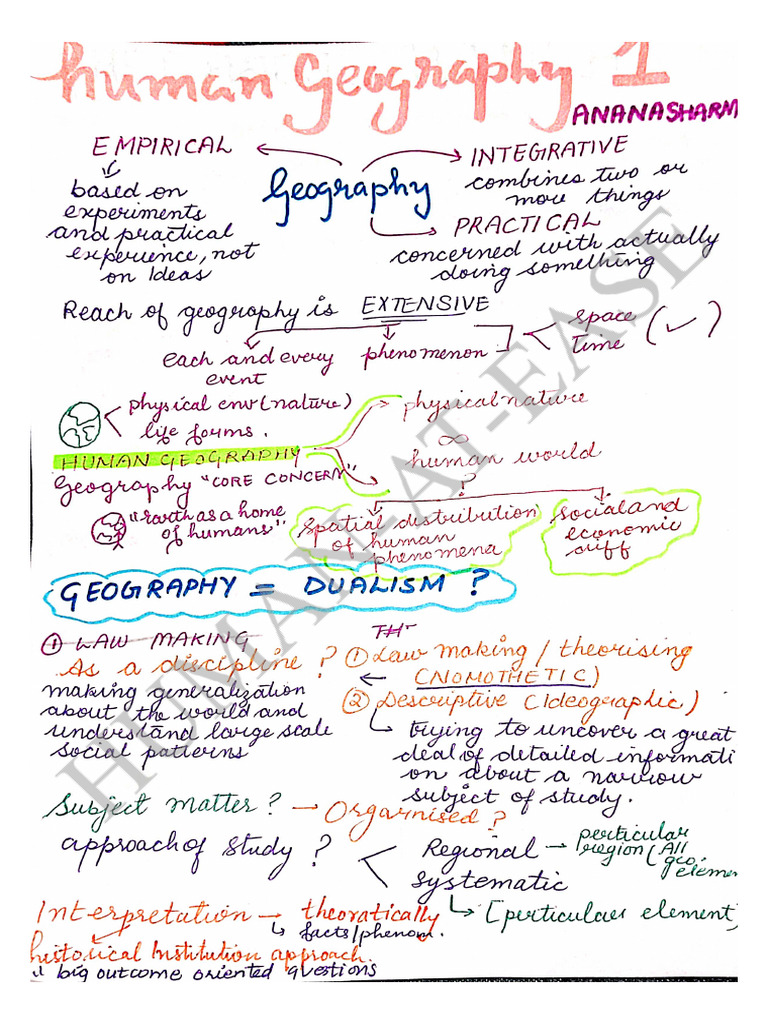 human Geography 1
ANANASHARM
EMPIRICAL
based on
experiments
and practical
experience, not
on Ideas
Geography
INTEGRATIVE
combines two or
more things
PRACTICAL
concerned with actually
doing something
Reach of geography is EXTENSIVE
each and every
event
phenomenon
space
time
physical env (nature)
life forms.
HUMAN GEOGRAPHY
Geography "CORE CONCERN"
"Earth as a home
of humans"
physical nature
∞
human world
?
Spatial distribution
of human
phenomena
Social and
economic
diff
GEOGRAPHY = DUALISM ?
① LAW MAKING
As a discipline ?
making generalization
about the world and
understand large scale
social patterns
THT
① Law making / theorising
(NOMOTHETIC)
② Descriptive (Ideographic)
trying to uncover a great
deal of detailed informati
on about a narrow
subject of study.
Subject matter ? — Orgarnised ?
approach of study ?
Regional → perticular
region (All
geo.
elemen
systematic
[perticular element]
Interpretation → theoratically
facts/phenom.
historical Institution approach.
" big outcome oriented questions
HUMAN-AT-EASE